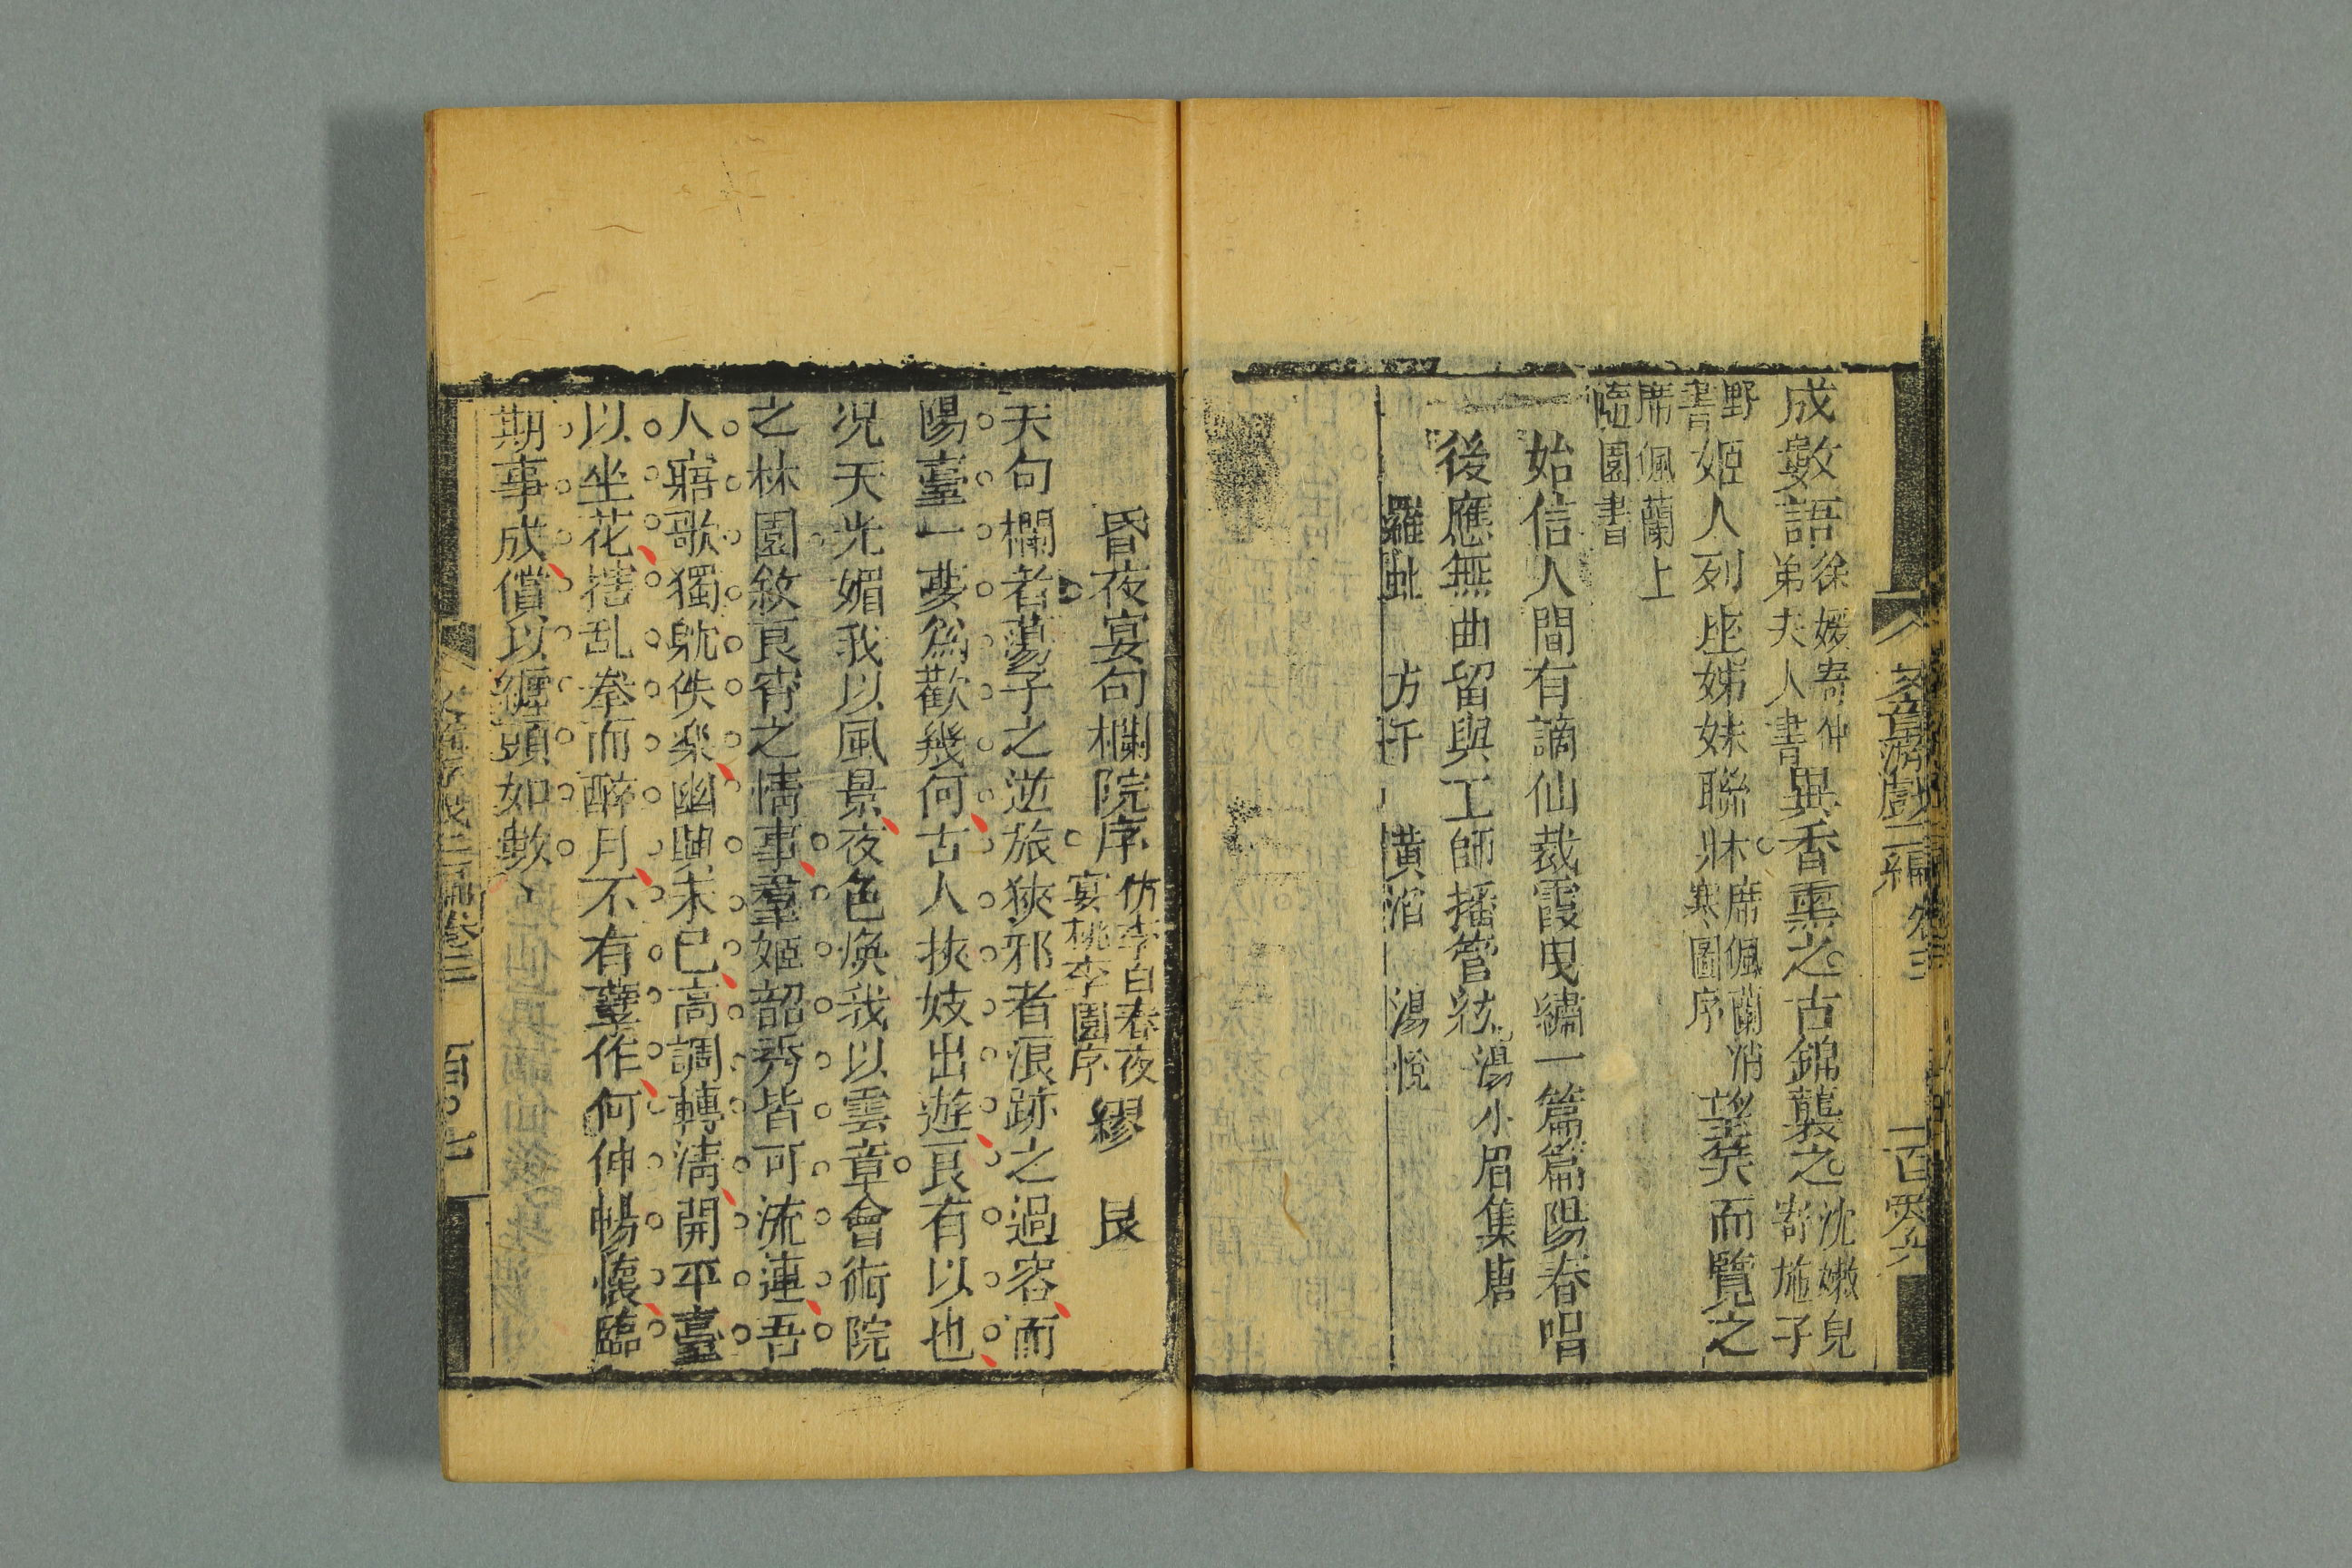 文章游戲二編 卷三 一百零六
成數語徐媛寄仲弟夫人書異香熏之古錦襲之沈嫩皃寄施子
野書姬人列座姊妹聯牀席佩蘭消寒圖序望奘而覽之
席佩蘭上隨園書
一始信人間有謫仙裁霞曳繡一篇篇陽春唱
後應無曲留與工師播管絃湯小眉集唐
羅虬 方干 黃滔 湯悅
昏夜宴句欄院序仿李白春夜宴桃李園序繆 艮
天句欄者蕩子之逆旅狹邪者浪跡之過客而
陽臺一夢爲歡幾何古人挾妓出遊艮有以也
况天光媚我以風景夜色煥我以雲章會術院
之林園敘良宵之情事羣姬韶秀皆可流連吾
人寤歌獨躭佚樂幽興未已高調轉淸開平臺
以坐花搳乱拳而醉月不有孽作何伸暢懷臨
期事成償以纏頭如數
文章游戲二編卷三 百〇七